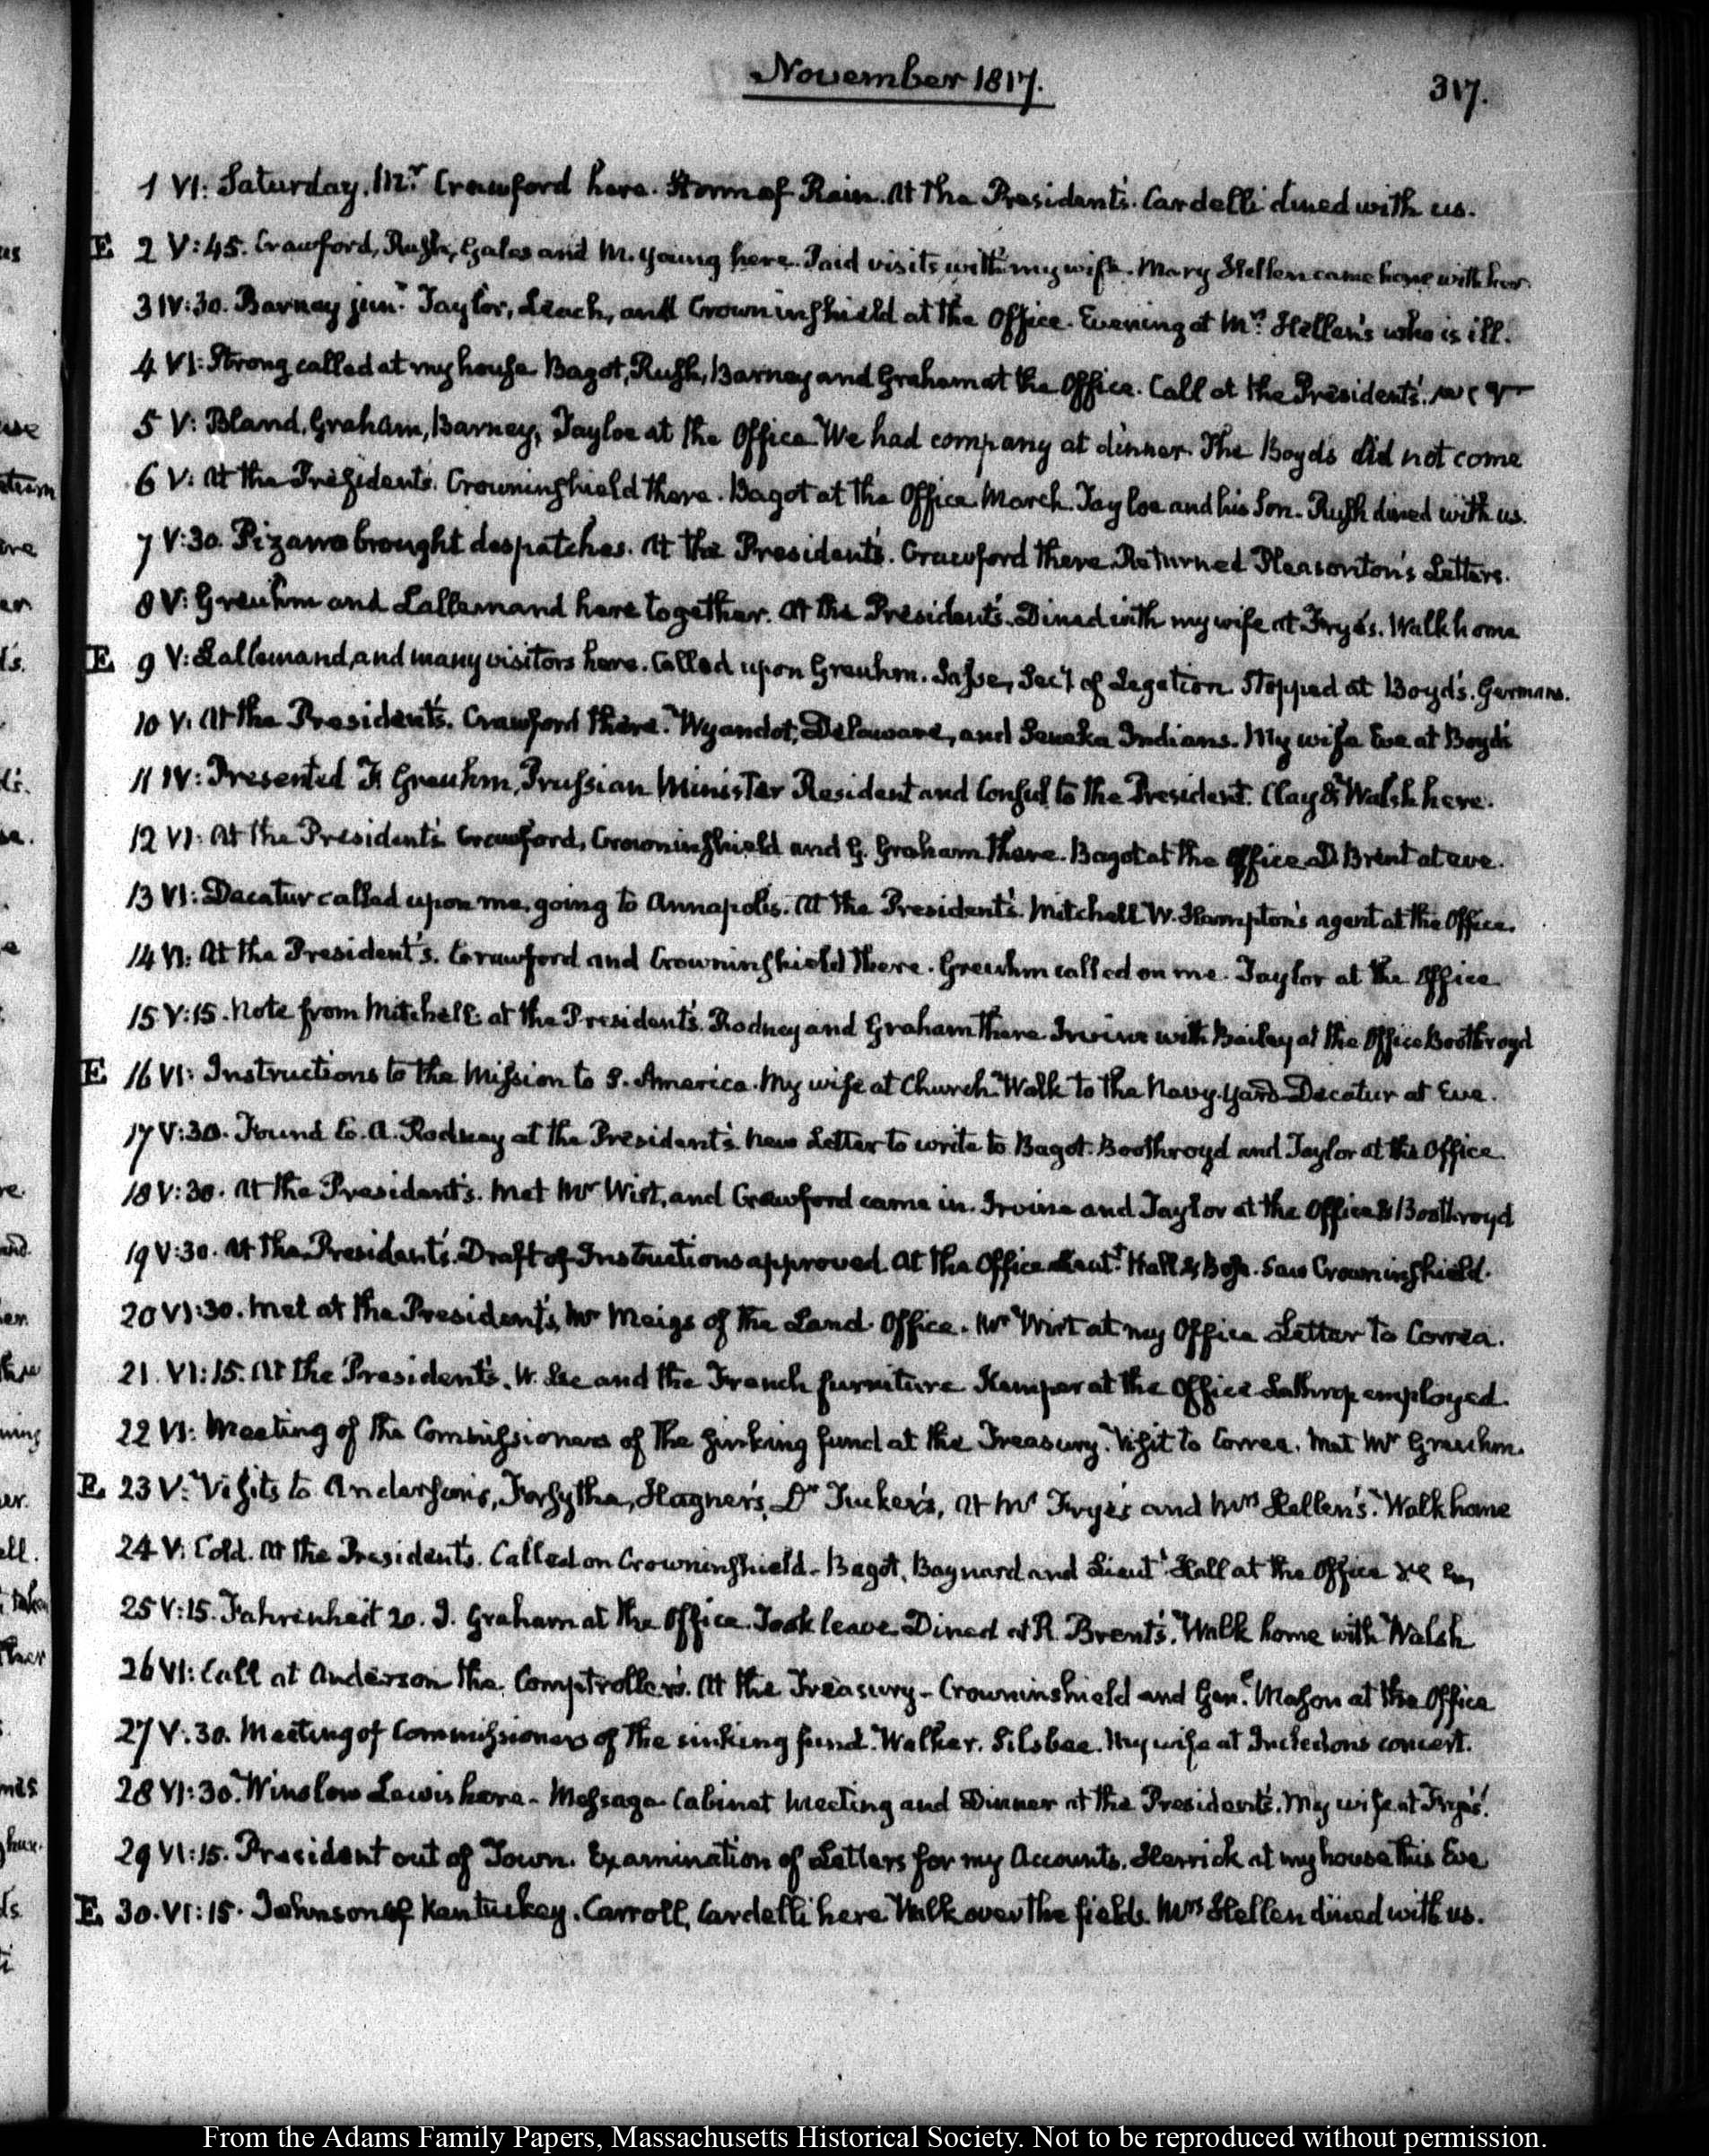 November 1817.
317.
1 VI: Saturday. Mr. Crawford here. Storm of Rain. At the President's. Cardelli dined with us.
E 2 V:45. Crawford, Rush, Gales and M. Young here. Paid visits with my wife. Mary Hellen came home with her.
3 IV:30. Barney junr. Taylor, Leach, and Crowninshield at the Office. Evening at Mrs. Hellen's who is ill.
4 VI: Strong called at my house Bagot, Rush, Barney and Graham at the Office. Call at the President's.
5 V: Bland, Graham, Barney, Tayloe at the Office We had company at dinner. The Boyds did not come
6 V: At the President's. Crowninshield there. Bagot at the Office March. Tayloe and his Son. Rush dined with us.
7 V:30. Pizarro brought despatches. At the President's. Crawford there. Returned Pleasonton's Letters.
8 V: Greuhm and Lallemand here together. At the President's. Dined with my wife at Frye's. Walk home
E 9 V: Lallemand, and many visitors here. Called upon Greuhm. Secy. of Legation. Stopped at Boyd's. Germans.
10 V. At the President's. Crawford there. Wyandot, Delaware, and Seneka Indians. My wife Eve at Boyd's
11 IV: Presented F. Greuhm, Prussian Minister Resident and Consul to the President. Clay & Walsh here.
12 VI: At the President's Crawford, Crowninshield and G. Graham there. Bagot at the Office D. Brent at eve.
13 VI: Decatur called upon me, going to Annapolis. At the President's. Mitchell W. Hampton's agent at the Office.
14 VI: At the President's. Crawford and Crowninshield there. Greuhm called on me. Taylor at the Office
15 V:15. Note from Mitchell at the President's. Rodney and Graham there Irvine with Bailey at the Office Boothroyd
E 16 VI: Instructions to the Mission to S. America. My wife at Church. Walk to the Navy-yard Decatur at Eve.
17 V:30. Found C. A. Rodney at the President's. New Letter to write to Bagot. Boothroyd and Taylor at the Office.
18 V:30. At the President's. Met Mr Wirt, and Crawford came in. Irvine and Taylor at the Office & Boothroyd
19 V:30. At the President's. Draft of Instructions approved. At the Office Lieutt. Hall & Boss. Saw Crowninshield.
20 VI:30. Met at the President's, Mr Meigs of the Land Office. Mr Wirt at my Office Letter to Correa.
21. VI:15. At the President's. W. Lee and the French furniture Kemper at the Office Lathrop employed.
22 VI: Meeting of the Commissioners of the sinking fund at the Treasury. Visit to Correa. Met Mr Greuhm.
E 23 V: Visits to Anderson's, Forsythe, Hagner's, Dr Tucker's, At Mr Frye's and Mrs Hellen's. Walk home
24 V: Cold. At the President's. Called on Crowninshield. Bagot, Baynard and Lieutt. Hall at the Office
25 V:15. Fahrenheit 20. J. Graham at the Office. Took leave. Dined at R. Brent's. Walk home with Walsh
26 VI: Call at Anderson the Comptroller's. At the Treasury - Crowninshield and Genl. Mason at the Office
27 V:30. Meeting of Commissioners of the sinking fund. Walker. Silsbee. My wife at Incledon's concert.
28 VI:30. Winslow Lewis here - Message Cabinet Meeting and Dinner at the President's. My wife at Frye's.
29 VI:15. President out of Town. Examination of Letters for my Accounts. Herrick at my house this Eve
E 30. VI:15. Johnson of Kentuckey. Carroll, Cardelli here Walk over the fields. Mrs Hellen dined with us.
From the Adams Family Papers, Massachusetts Historical Society. Not to be reproduced without permission.